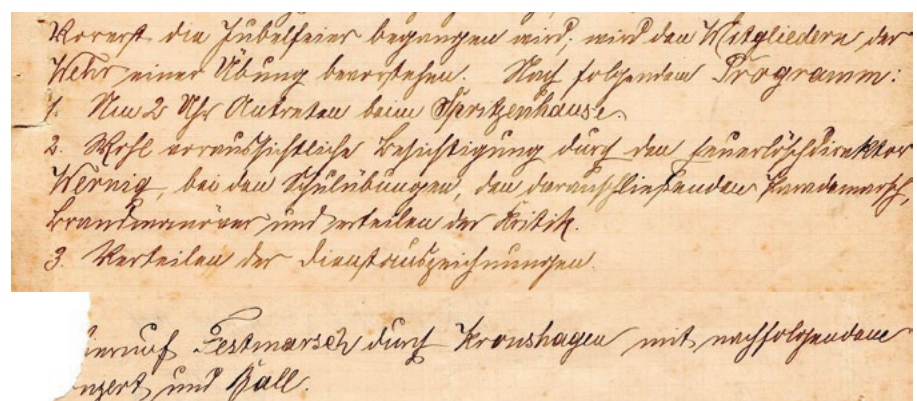 Vorerst die Jubelfeier begangen wird, wird den Mitgliedern der
Wehr einer Übung bevorstehen. Nach folgendem Programm:
1. Um 2 Uhr Antreten beim Spritzenhause.
2. Wohl voraussichtliche Besichtigung durch den Feuerlöschdirektor
Wernig, bei den Schulübungen, den daranschließenden Parademarsch,
Brandmanöver und erteilen der Kritik.
3. Verteilen der Dienstauszeichnungen.
ierauf Festmarsch durch Kronshagen mit nachfolgendem
nzert und Ball.